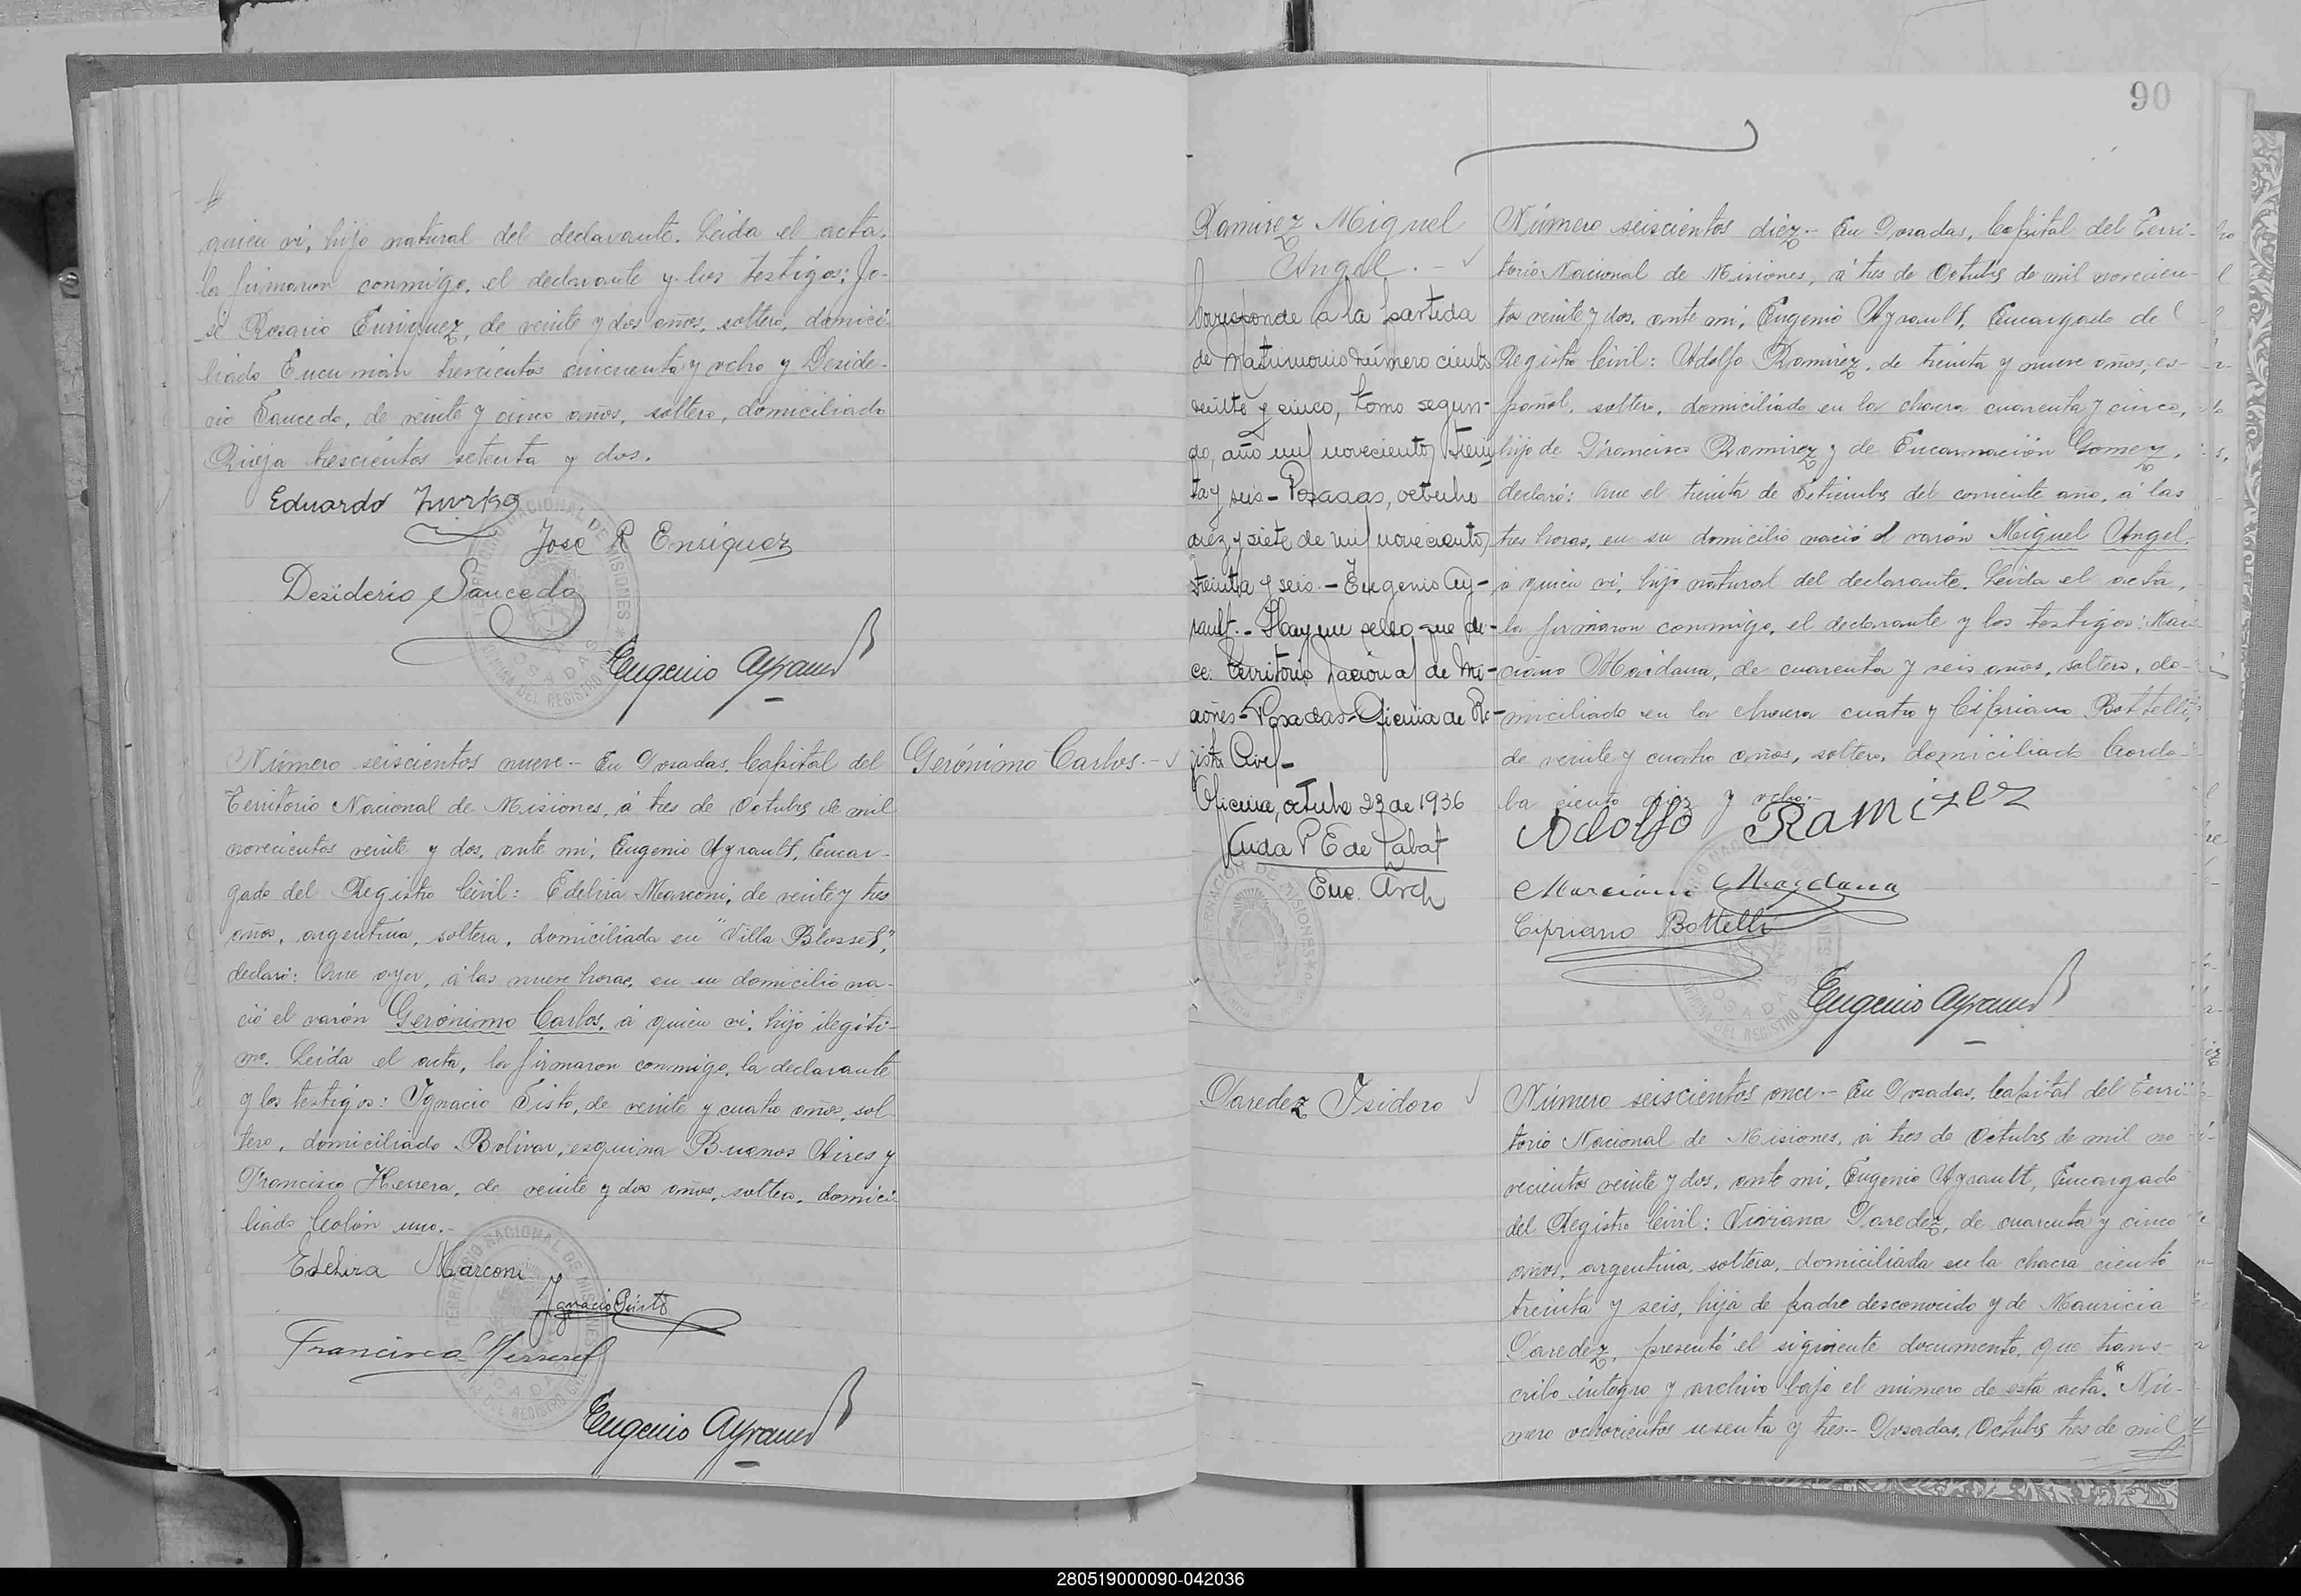 quien vi, hijo natural del declarante. Leida el acta,
la firmaron conmigo, el declarante y los testigos: Jo-
sé Rosario Enriquez, de veinte y dos años, soltero, domici-
liado Tucumán trescientos cincuenta y ocho y Deside-
rio Saucedo, de veinte y cinco años, soltero, domiciliado
Rioja trescientos setenta y dos.
Eduardo
José R Enriquez
Desiderio Saucedo
Eugenio Ayrault
Número seiscientos nueve.- En Posadas, Capital del
Territorio Nacional de Misiones, á tres de Octubre de mil
novecientos veinte y dos, ante mi, Eugenio Ayrault, Encar-
gado del Registro Civil: Edelvira Marconi, de veinte y tres
años, argentina, soltera, domiciliada en "Villa Blosset",
declaró: Que ayer, á las nueve horas, en su domicilio na-
ció el varón Gerónimo Carlos, á quien vi, hijo ilegíti-
mo. Leida el acta, la firmaron conmigo, la declarante
y los testigos: Ignacio Sisto, de veinte y cuatro años, sol-
tero, domiciliado Bolivar, esquina Buenos Aires y
Francisco Herrera, de veinte y dos años, soltero, domici-
liado Colón uno.-
Edelvira Marconi
Ignacio
Francisco Herrera
Eugenio Ayrault
Gerónimo Carlos.-
90
Ramirez Miguel
Angel.-
Corresponde a la partida
de matrimonio número ciento
veinte y cinco, tomo segun-
do, año mil novecientos trein
ta y seis - Posadas, octubre
diez y siete de mil novecientos
treinta y seis.- Eugenio Ay-
rault.- Hay un sello que di-
ce: Territorio Nacional de Mi-
siones - Posadas - Oficina de Re-
gistro Civil -
Oficina, octubre 23 de 1936
Enc. Arch
Número seiscientos diéz.- En Posadas, Capital del Terri-
torio Nacional de Misiones, á tres de Octubre de mil novecien-
tos veinte y dos, ante mi, Eugenio Ayrault, Encargado del
Registro Civil: Adolfo Ramirez, de treinta y nueve años, es-
pañol, soltero, domiciliado en la chacra cuarenta y cinco,
hijo de Francisco Ramirez y de Encarnación Gomez,
declaró: Que el treinta de Setiembre del corriente año, á las
tres horas, en su domicilio nació el varón Miguel Angel,
á quien vi, hijo natural del declarante. Leida el acta,
la firmaron conmigo, el declarante y los testigos: Mar-
ciano Maidana, de cuarenta y seis años, soltero, do-
miciliado en la chacra cuatro y Cipriano Bottelli,
de veinte y cuatro años, soltero, domiciliado Córdo-
ba ciento diez y ocho.-
Adolfo Ramirez
Marciano Maydana
Cipriano Bottelli
Eugenio Ayrault
Paredez Isidoro
Número seiscientos once.- En Posadas, Capital del Terri-
torio Nacional de Misiones, á tres de Octubre de mil no
vecientos veinte y dos, ante mi, Eugenio Ayrault, Encargado
del Registro Civil: Viviana Paredez, de cuarenta y cinco
años, argentina, soltera, domiciliada en la chacra ciento
treinta y seis, hija de padre desconocido y de Mauricia
Paredez, presentó el siguiente documento, que trans-
cribo integro y archivo bajo el número de esta acta. "Nú-
mero ochocientos sesenta y tres.- Posadas, Octubre tres de mil
280519000090-042036